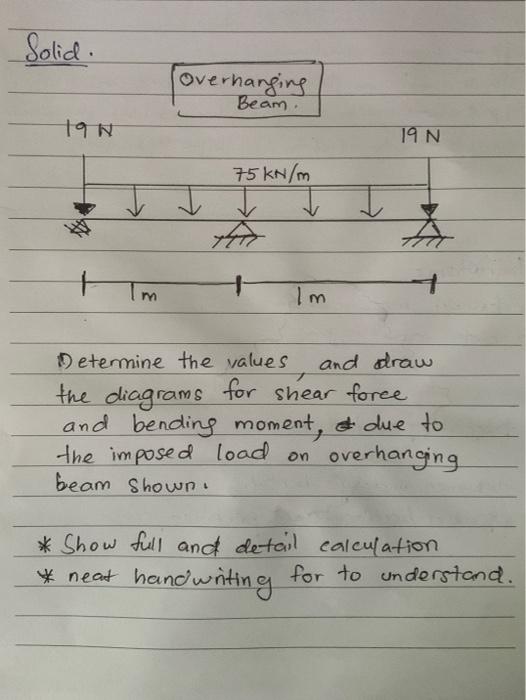 Solid.
Overhanging
Beam.
19 N
19 N
75 kN/m
1m
1m
Determine the values, and draw
the diagrams for shear force
and bending moment, due to
the imposed load on overhanging
beam shown.
* Show full and detail calculation
* neat handwriting for to understand.